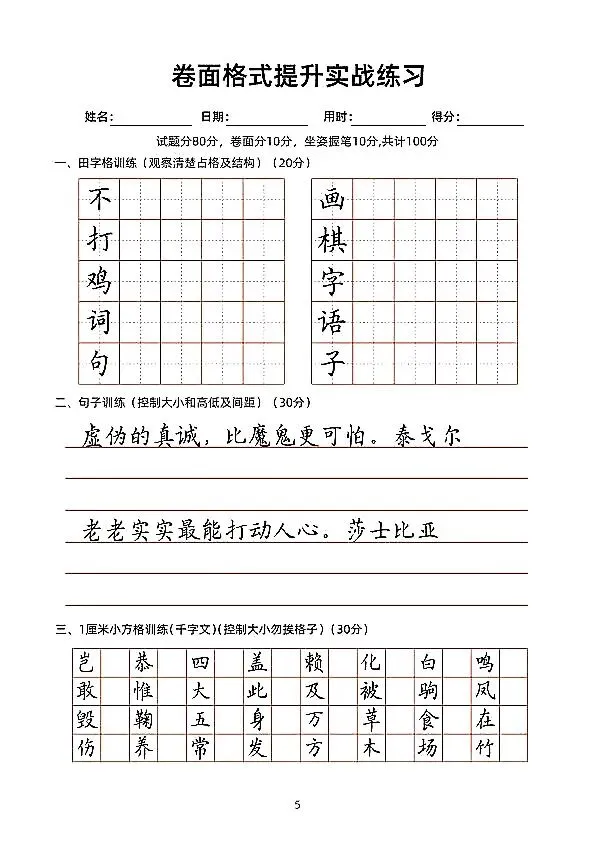 卷面格式提升实战练习
姓名： 日期： 用时： 得分：
试题分80分，卷面分10分，坐姿握笔10分,共计100分
一、田字格训练（观察清楚占格及结构）（20分）
不 画
打 棋
鸡 字
词 语
句 子
二、句子训练（控制大小和高低及间距）（30分）
虚伪的真诚，比魔鬼更可怕。泰戈尔
老老实实最能打动人心。莎士比亚
三、1厘米小方格训练（千字文）（控制大小勿挨格子）（30分）
岂 恭 四 盖 赖 化 白 鸣
敢 惟 大 此 及 被 驹 凤
毁 鞠 五 身 万 草 食 在
伤 养 常 发 方 木 场 竹
5